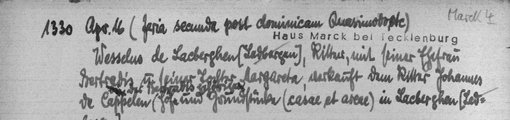 Marck 4
1330 Apr. 16 (feria secunda post dominicam Quasimodogeniti)
Haus Marck bei Tecklenburg
Wesselus de Lacberghen [Ledbergen], Ritter, mit seiner Ehefrau
Bertradis u. seiner Tochter Margareta, verkauft dem Ritter Johannes
de Cappelen (Höfe und Grundstücke (casae et areae) in Lacberghen [Led-